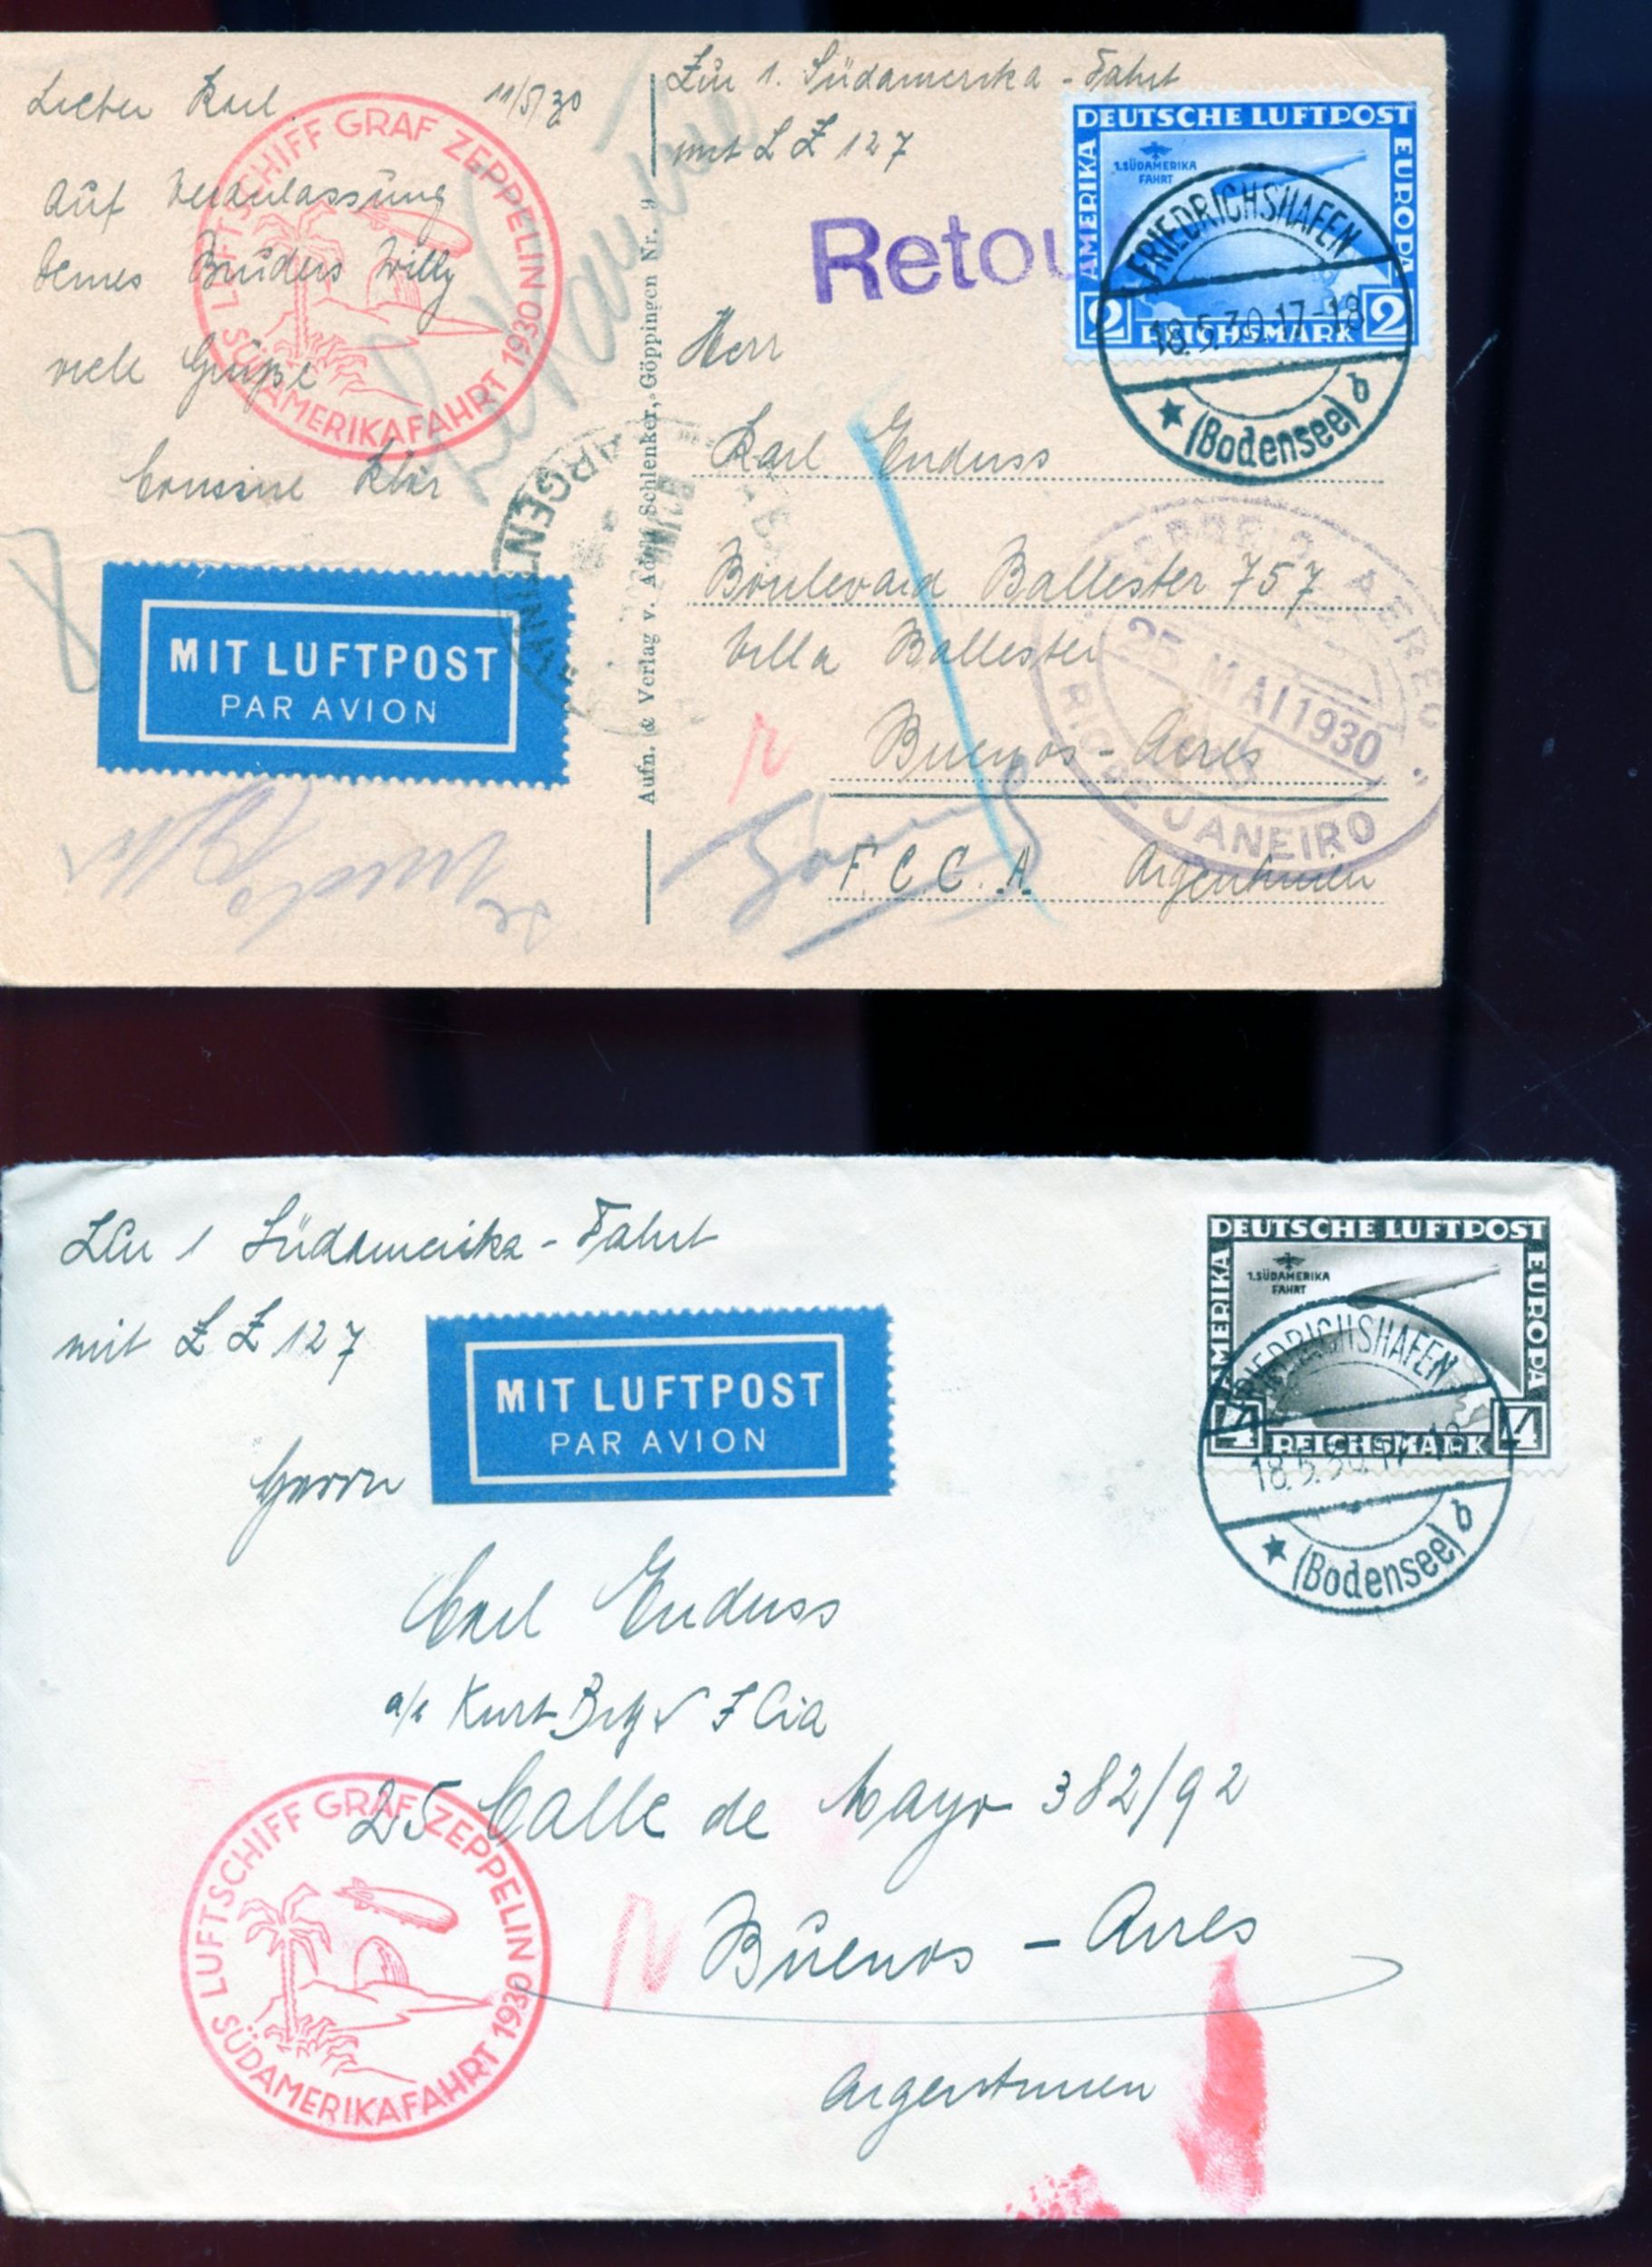 Lieber Karl 11/5/30
Auf Veranlassung
Deines Bruders Willy
viele Grüße
Cousine Klär
LUFTSCHIFF GRAF ZEPPELIN
SÜDAMERIKAFAHRT 1930
MIT LUFTPOST
PAR AVION
ARGENTINA
Aufn. & Verlag v. Adolf Schlenker, Göppingen Nr. 9
Zur 1. Südamerika-Fahrt
mit L Z 127
Retour
DEUTSCHE LUFTPOST
AMERIKA
EUROPA
1.SÜDAMERIKA
FAHRT
2 REICHSMARK 2
FRIEDRICHSHAFEN
18.5.30.17-18
(Bodensee) b
Herr
Karl Enduss
Boulevard Ballester 757
Villa Ballester
Buenos-Aires
F.C.C.A. Argentinien
CORREIO AEREO
25 MAI 1930
RIO DE JANEIRO
Zur 1 Südamerika-Fahrt
mit L Z 127
MIT LUFTPOST
PAR AVION
DEUTSCHE LUFTPOST
AMERIKA
EUROPA
1.SÜDAMERIKA
FAHRT
4 REICHSMARK 4
FRIEDRICHSHAFEN
18.5.30.17-18
(Bodensee) b
Herrn
Carl Enduss
Kurt Cia
25 Calle de Mayo 382/92
Buenos-Aires
Argentinien
LUFTSCHIFF GRAF ZEPPELIN
SÜDAMERIKAFAHRT 1930